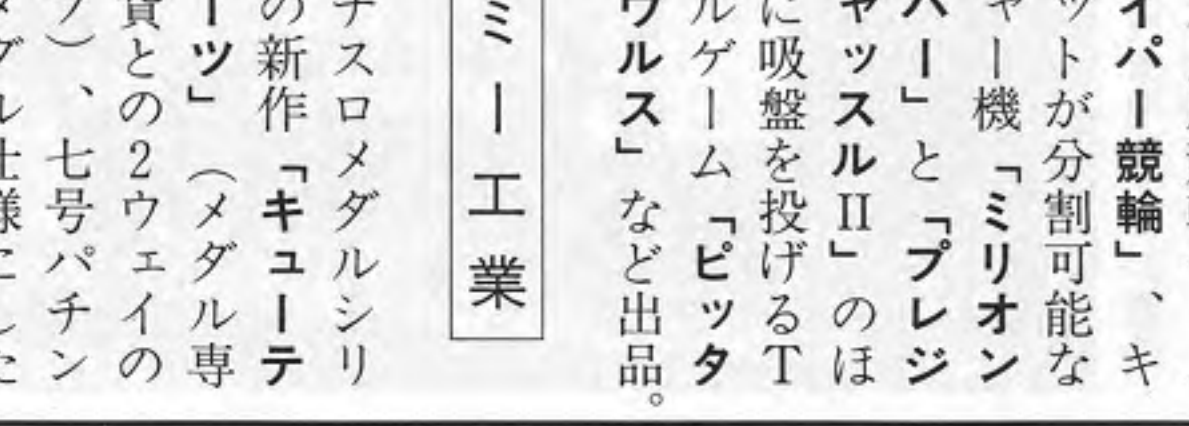 イパー競輪」、キ
ットが分割可能な
ャー機「ミリオン
バー」と「プレジ
ャッスルII」のほ
に吸盤を投げるT
ルゲーム「ピッタ
ウルス」など出品。
ミー工業
ナスロメダルシリ
の新作「キューテ
ーツ」（メダル専
貨との2ウェイの
）、七号パチン
ダル仕様にした